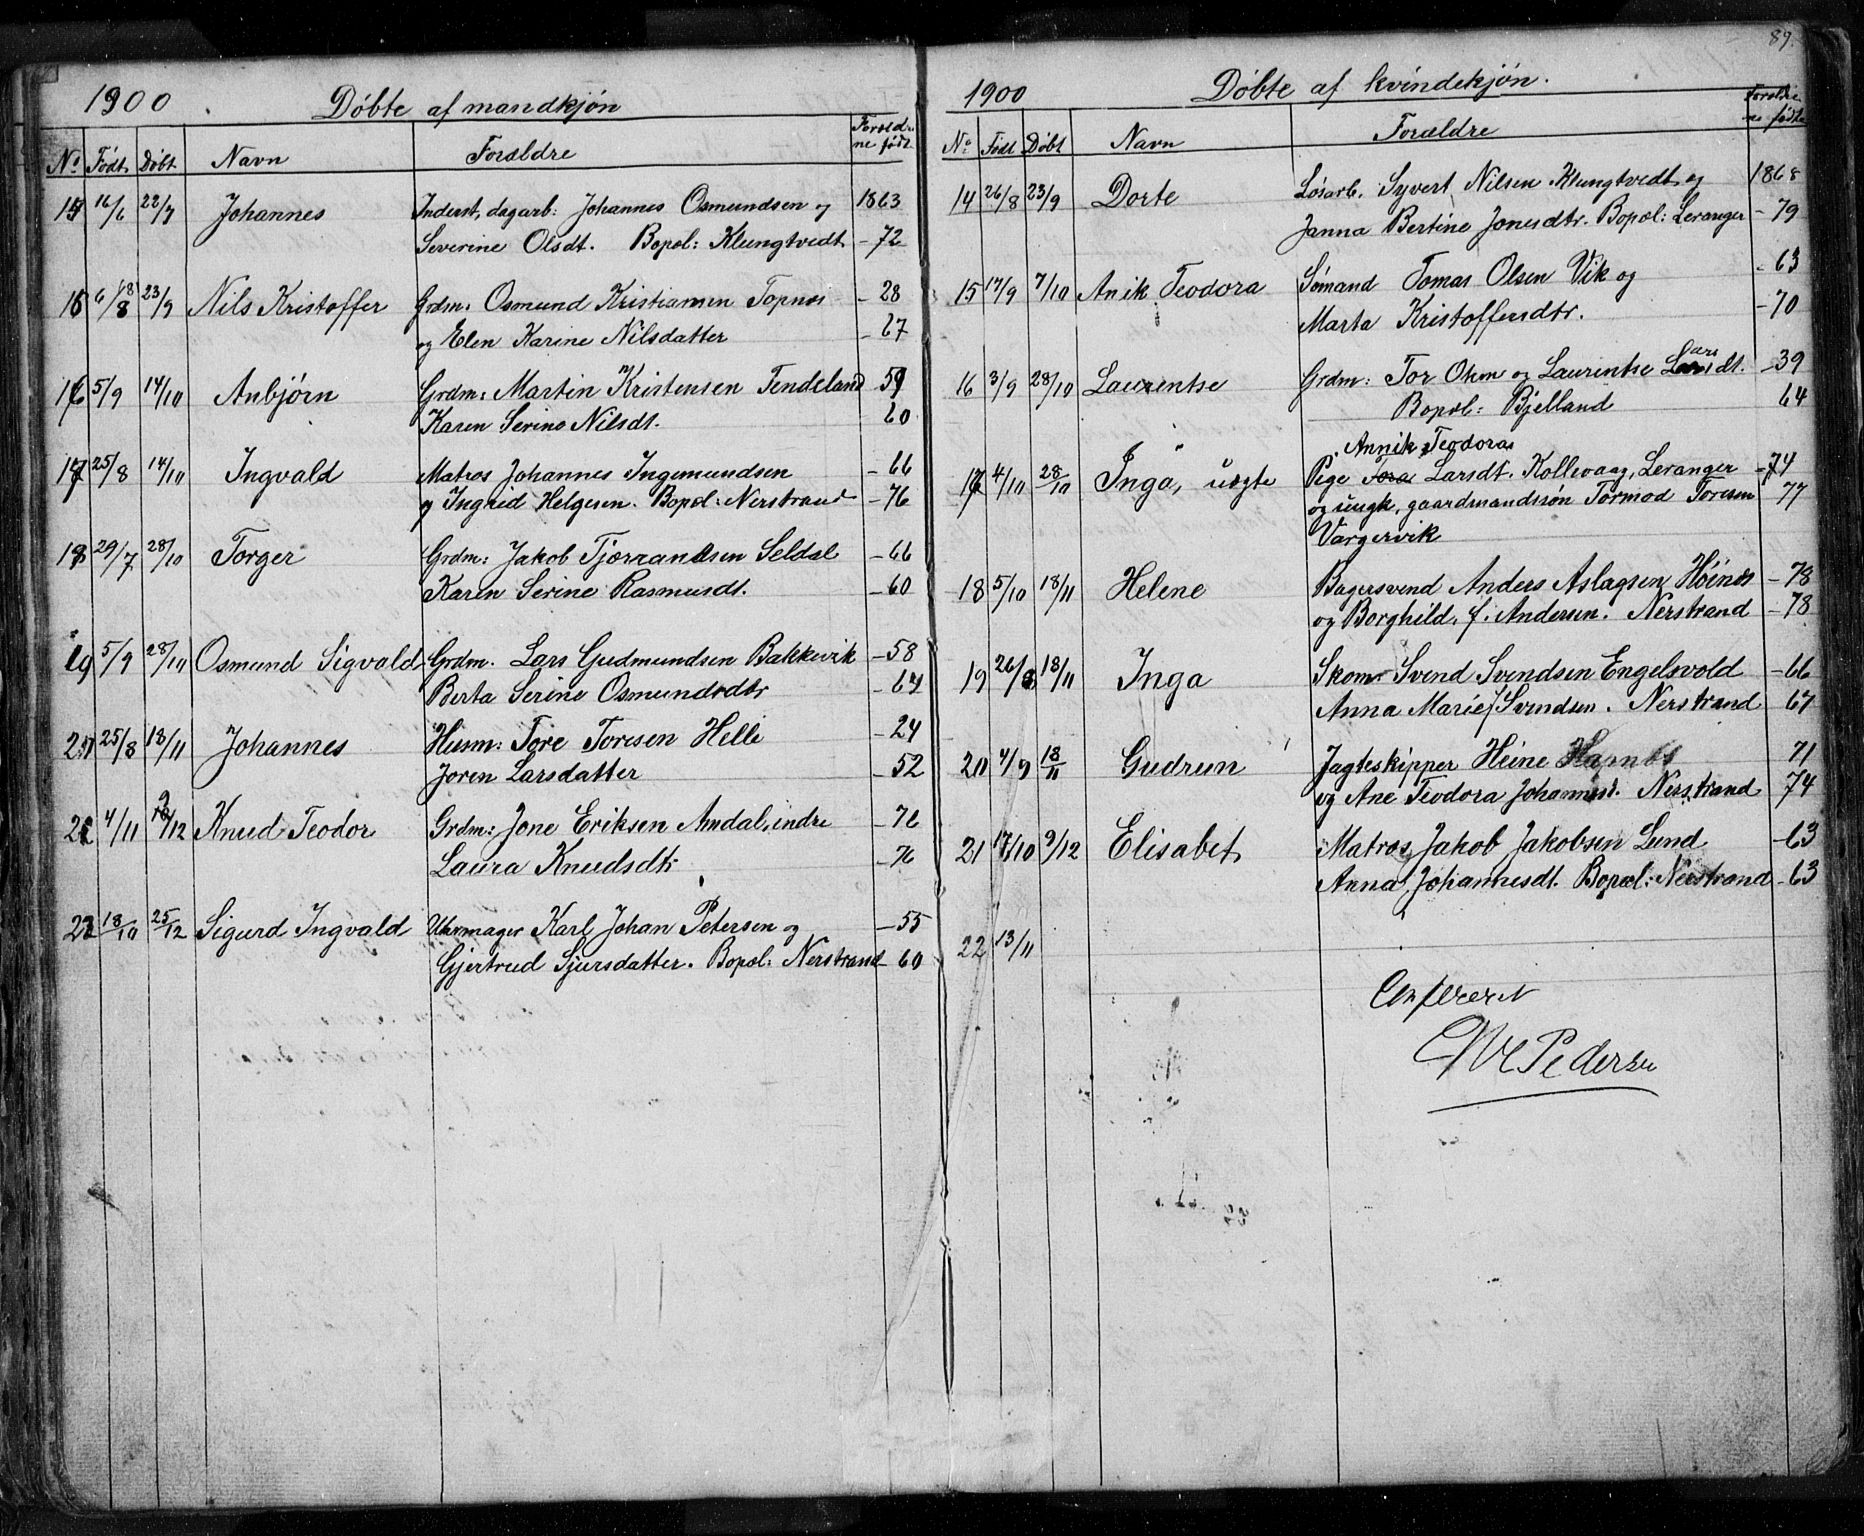 1900 Døbte af mandkjøn
No Født Døbt Navn Forældre Forældrene født
15 16/6 22/7 Johannes Inderst, dagarb: Johannes Osmundsen og 1863
Severine Olsdt. Bopæl: Klungtvedt -72
Nils Kristoffer Grdm: Osmund Kristiansen Topnes -28
og Elen Karine Nilsdatter -67
16 5/9 14/10 Anbjørn Grdm: Martin Kristensen Tendeland 59
Karen Serine Nilsdt. 60
17 25/8 14/10 Ingvald Matros Johannes Ingemundsen -66
og Ingrid Helgesen. Bopæl: Nerstrand -76
18 29/7 28/10 Torger Grdm: Jakob Tjærrandsen Seldal -66
Karen Serine Rasmusdt. -60
19 5/9 28/10 Osmund Sigvald Grdm. Lars Gudmundsen Bakkevik -58
Berta Serine Osmundsdtr
20 25/8 18/11 Johannes Husm: Tore Toresen Helle -24
Joren Larsdatter -52
21 4/11 9/12 Knud Teodor Grdm: Jone Eriksen Amdal, indre -76
Laura Knudsdtr -76
22 18/10 25/12 Sigurd Ingvald Uhrmager Karl Johan Petersen og -55
Gjertrud Sjursdatter. Bopæl: Nerstrand -60
89.
1900 Døbte af kvindekjøn.
No Født Døbt Navn Forældre Forældrene fødte
14 26/8 23/9 Dorte Løsarb. Syvert Nilsen Klungtvedt og 1868
Janna Bertine Jonesdtr. Bopæl: Leranger -79
15 17/9 7/10 Anik Teodora Sømand Tomas Olsen Vik og -63
Marta Kristoffersdtr. -70
16 3/9 28/10 Laurentse Grdm: Tor Olsen og Laurentse Larsdt. -39
Bopæl: Bjelland 64
Annik Teodora
17 4/10 28/10 Inga, uægte Pige Tora Larsdt. Kollevaag, Leranger -74
og ungk, gaardmandssøn Tormod Toresen 77
Vargervik
18 5/10 18/11 Helene Bagersvend Anders Aslagsen Höinæs -78
og Borghild, f. Andersen. Nerstrand -78
19 26/8 18/11 Inga Skom Svend Svendsen Engelsvold -66
Anna Marie f Svendsen. Nerstrand 67
20 4/9 18/11 Gudrun Jagteskipper Heine Hapnes 71
og Ane Teodora Johannesd. Nerstrand 74
21 17/10 9/12 Elisabet Matros Jakob Jakobsen Lund -63
Anna Johannesdt. Bopæl: Nerstrand -63
22 13/11
Confereret
Pedersen